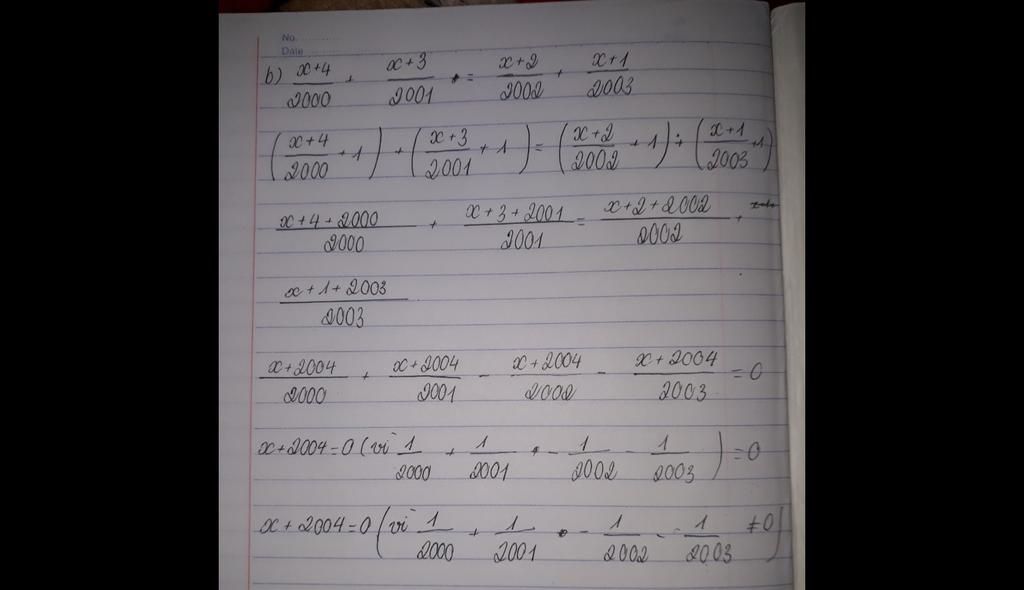 No. ..........
Date ..........
b) (x+4)/2000 + (x+3)/2001 = (x+2)/2002 + (x+1)/2003
((x+4)/2000 + 1) + ((x+3)/2001 + 1) = ((x+2)/2002 + 1) + ((x+1)/2003 + 1)
(x+4+2000)/2000 + (x+3+2001)/2001 = (x+2+2002)/2002 +
(x+1+2003)/2003
(x+2004)/2000 + (x+2004)/2001 - (x+2004)/2002 - (x+2004)/2003 = 0
x+2004=0 (vì 1/2000 + 1/2001 - 1/2002 - 1/2003) = 0
x+2004=0 (vì 1/2000 + 1/2001 - 1/2002 - 1/2003 ≠0)